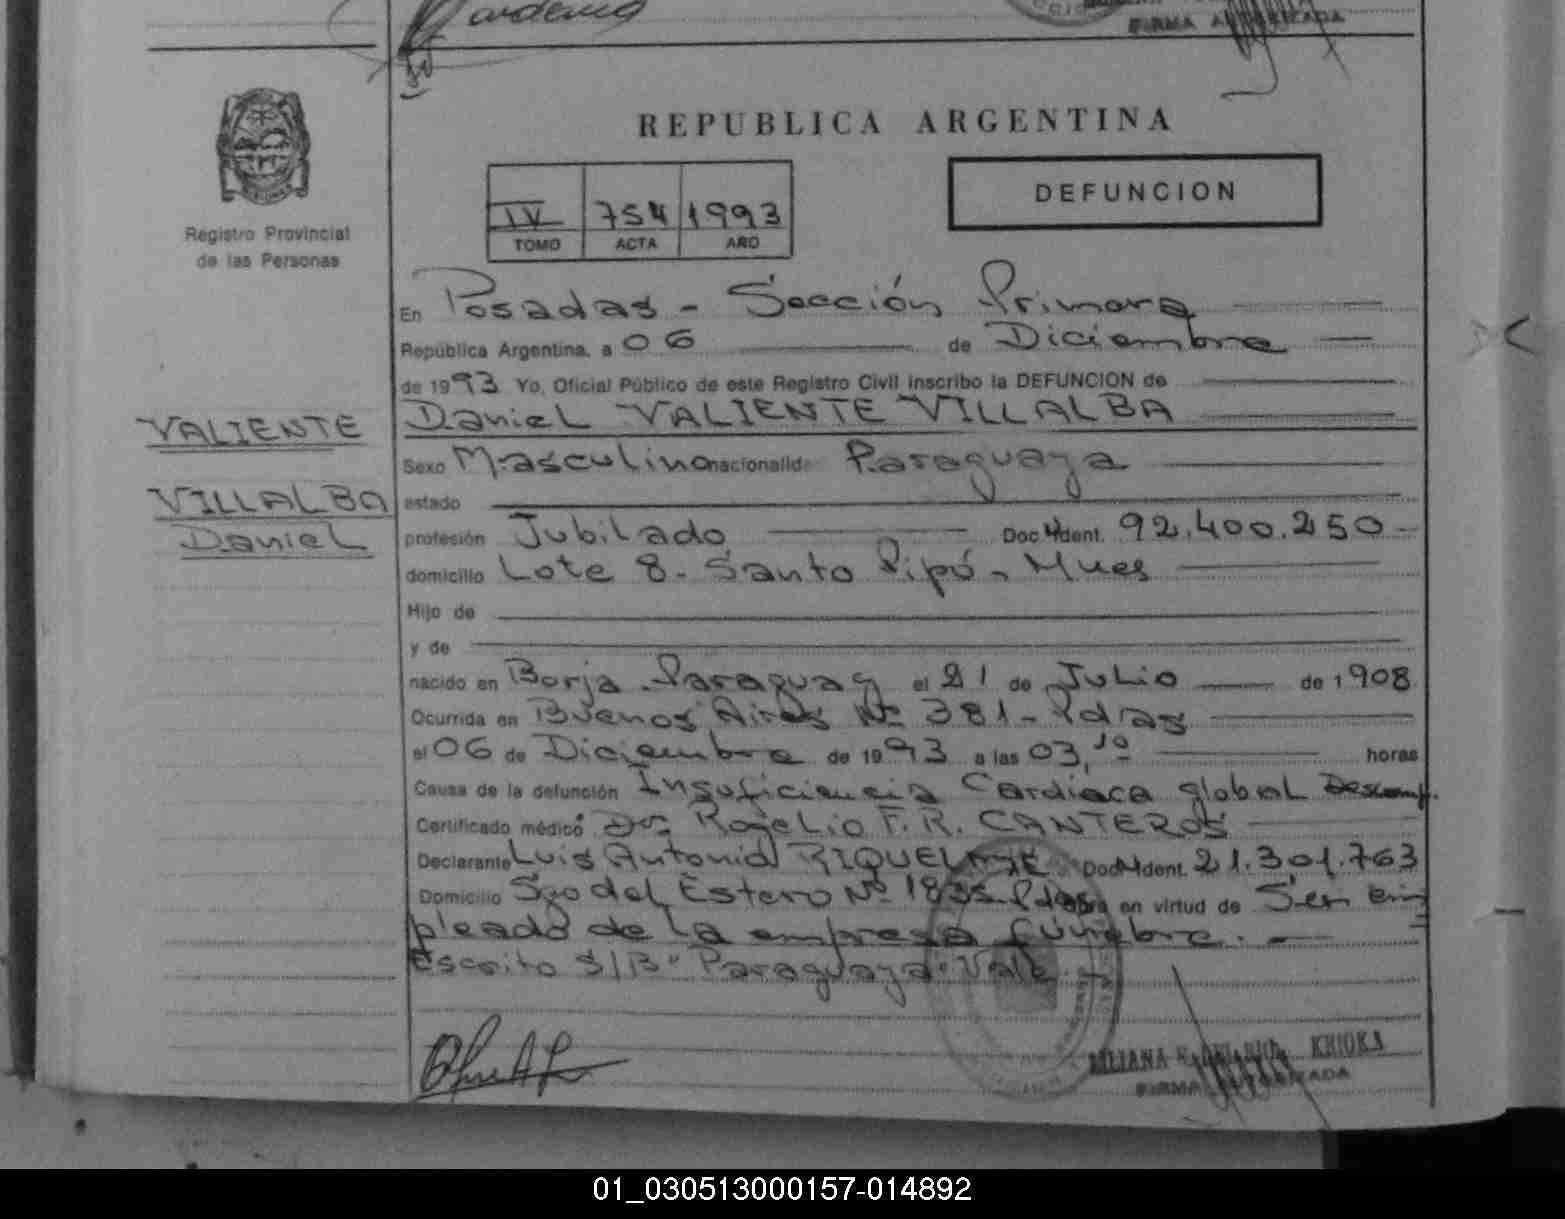 FIRMA AUTORIZADA
REPUBLICA ARGENTINA
Registro Provincial
de las Personas
IV 754 1993
TOMO ACTA AÑO
DEFUNCION
En Posadas - Sección Primera
República Argentina, a 06 de Diciembre
de 1993 Yo, Oficial Público de este Registro Civil inscribo la DEFUNCION de
Daniel VALIENTE VILLALBA
VALIENTE
VILLALBA
Daniel
Sexo Masculino nacionalid. Paraguaya
estado
profesión Jubilado Doc. Ident. 92.400.250
domicilio Lote 8 - Santo Pipó - Mnes
Hijo de
y de
nacido en Borja - Paraguay el 21 de Julio de 1908
Ocurrida en Buenos Aires Nº 381 - Pdas
el 06 de Diciembre de 1993 a las 03,10 horas
Causa de la defunción Insuficiencia Cardiaca global Descomp.
Certificado médico Dr. Rogelio F. R. CANTEROS
Declarante Luis Antonio RIQUELME Doc. Ident. 21.301.763
Domicilio Sgo del Estero Nº 1835 - Pdas obra en virtud de Ser em
pleado de la empresa fúnebre. -
Escrito S/B "Paraguaya" Vale
LILIANA KRIOKA
FIRMA AUTORIZADA
01_030513000157-014892